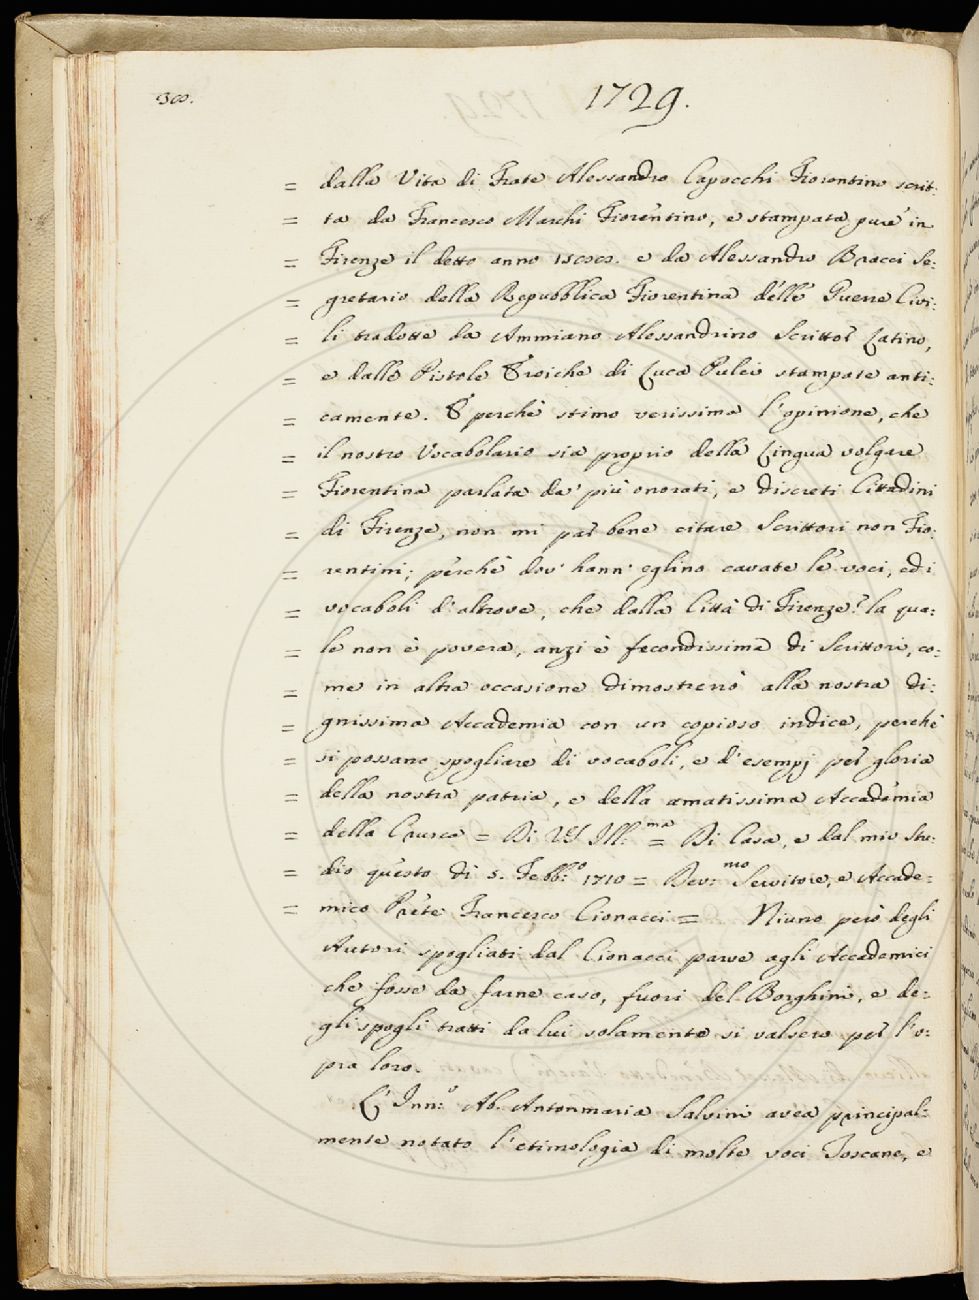 300.
1729.
= dalla Vita di Frate Alessandro Capocchi Fiorentino scrit-
= ta da Francesco Marchi Fiorentino, e stampata pure in
= Firenze il detto anno e da Alessandro Bracci Se-
= gretario della Repubblica Fiorentina delle Guerre Civi-
= li tradotte da Ammiano Alessandrino Scrittor Latino,
= e dalle Pistole Eroiche di Luca Pulci stampate anti-
= camente. E perchè stimo verissima l'opinione, che
= il nostro Vocabolario sia proprio della Lingua volgare
= Fiorentina parlata da' più onorati, e discreti Cittadini
= di Firenze, non mi par bene citare Scrittori non Fio-
= rentini; perchè dov' hann' eglino cavate le voci, ed i
= vocaboli d'altrove, che dalla Città di Firenze? la qua-
= le non è povera, anzi è fecondissima di Scrittori, co-
= me in altra occasione dimostrerò alla nostra di-
= gnissima Accademia con un copioso indice, perchè
= si possano spogliare di vocaboli, e d'esempj per gloria
= della nostra patria, e della amatissima Accademia
= della Crusca = Di VS Ill:ma = Di Casa, e dal mio Stu-
= dio questo dì 5. Febb:o 1710 = Dev:mo Servitore, e Accade-
= mico Prete Francesco Cionacci = Niuno però degli
Autori spogliati dal Cionacci parve agli Accademici
che fosse da farne caso, fuori del Borghini, e de-
gli spogli tratti da lui solamente si valsero per l'o-
pra loro.
L'Inn:o Ab. Antonmaria Salvini avea principal-
mente notato l'etimologia di molte voci Toscane, e